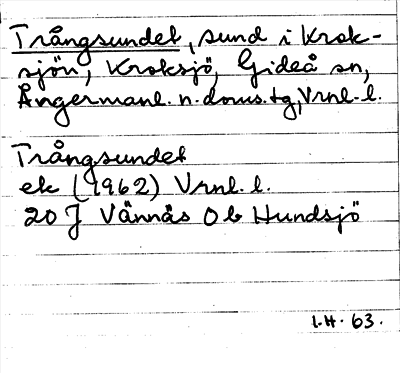 Trångsundet, sund i Krok-
sjön, Kroksjö, Gideå sn,
Ångermanl. n. doms. tg, Vrnl. l.
Trångsundet
ek (1962) Vrnl. l.
20 J Vännäs O b Hundsjö
I.H. 63.